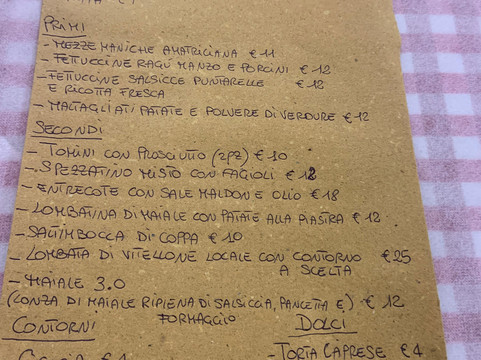 PRIMI
- MEZZE MANICHE AMATRICIANA € 11
- FETTUCCINE RAGÙ MANZO E PORCINI € 12
- FETTUCCINE SALSICCE PUNTARELLE € 12
E RICOTTA FRESCA
- MALTAGLIATI PATATE E POLVERE DI VERDURE € 12
SECONDI
- TOMINI CON PROSCIUTTO (2PZ) € 10
- SPEZZATINO MISTO CON FAGIOLI € 12
- ENTRECOTE CON SALE MALDON E OLIO € 18
- LOMBATINA DI MAIALE CON PATATE ALLA PIASTRA € 12
- SALTIMBOCCA DI COPPA € 10
- LOMBATA DI VITELLONE LOCALE CON CONTORNO € 25
A SCELTA
- MAIALE 3.0
(LONZA DI MAIALE RIPIENA DI SALSICCIA, PANCETTA E) € 12
FORMAGGIO
CONTORNI
DOLCI
- TORTA CAPRESE € 4